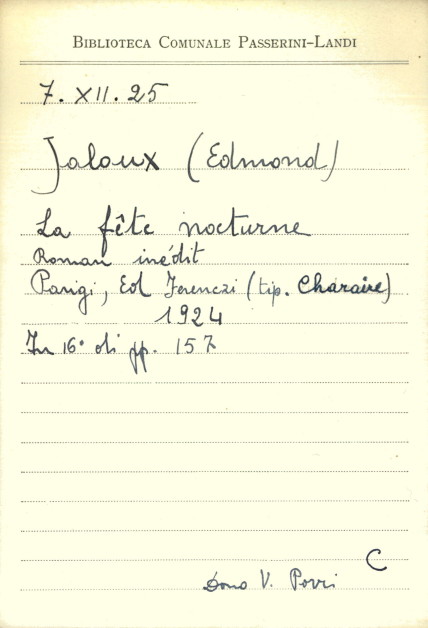 BIBLIOTECA COMUNALE PASSERINI-LANDI
7. XII. 25
Jaloux (Edmond)
La fête nocturne
Roman inédit
Parigi, Ed Ferenczi (tip. Charaire)
1924
In 16° di pp. 157
C
Dono V. Povri